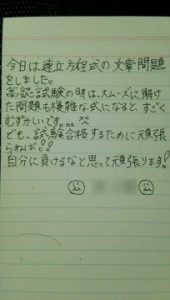 今日は連立方程式の文章問題
をしました。
高認試験の時は、スムーズに解け
た問題も複雑な式になると、すごく
むずかしいです。。。
でも、試験合格するために頑張
らねば!!
自分に負けるなと思って頑張ります!